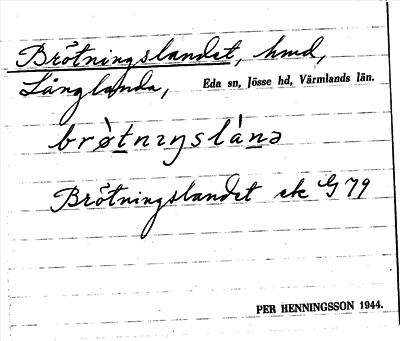 Brötningslandet, hmd,
Långlanda, Eda sn, Jösse hd, Värmlands län.
brø̀tnɪŋslànə
Brötningslandet ek G 79
PER HENNINGSSON 1944.